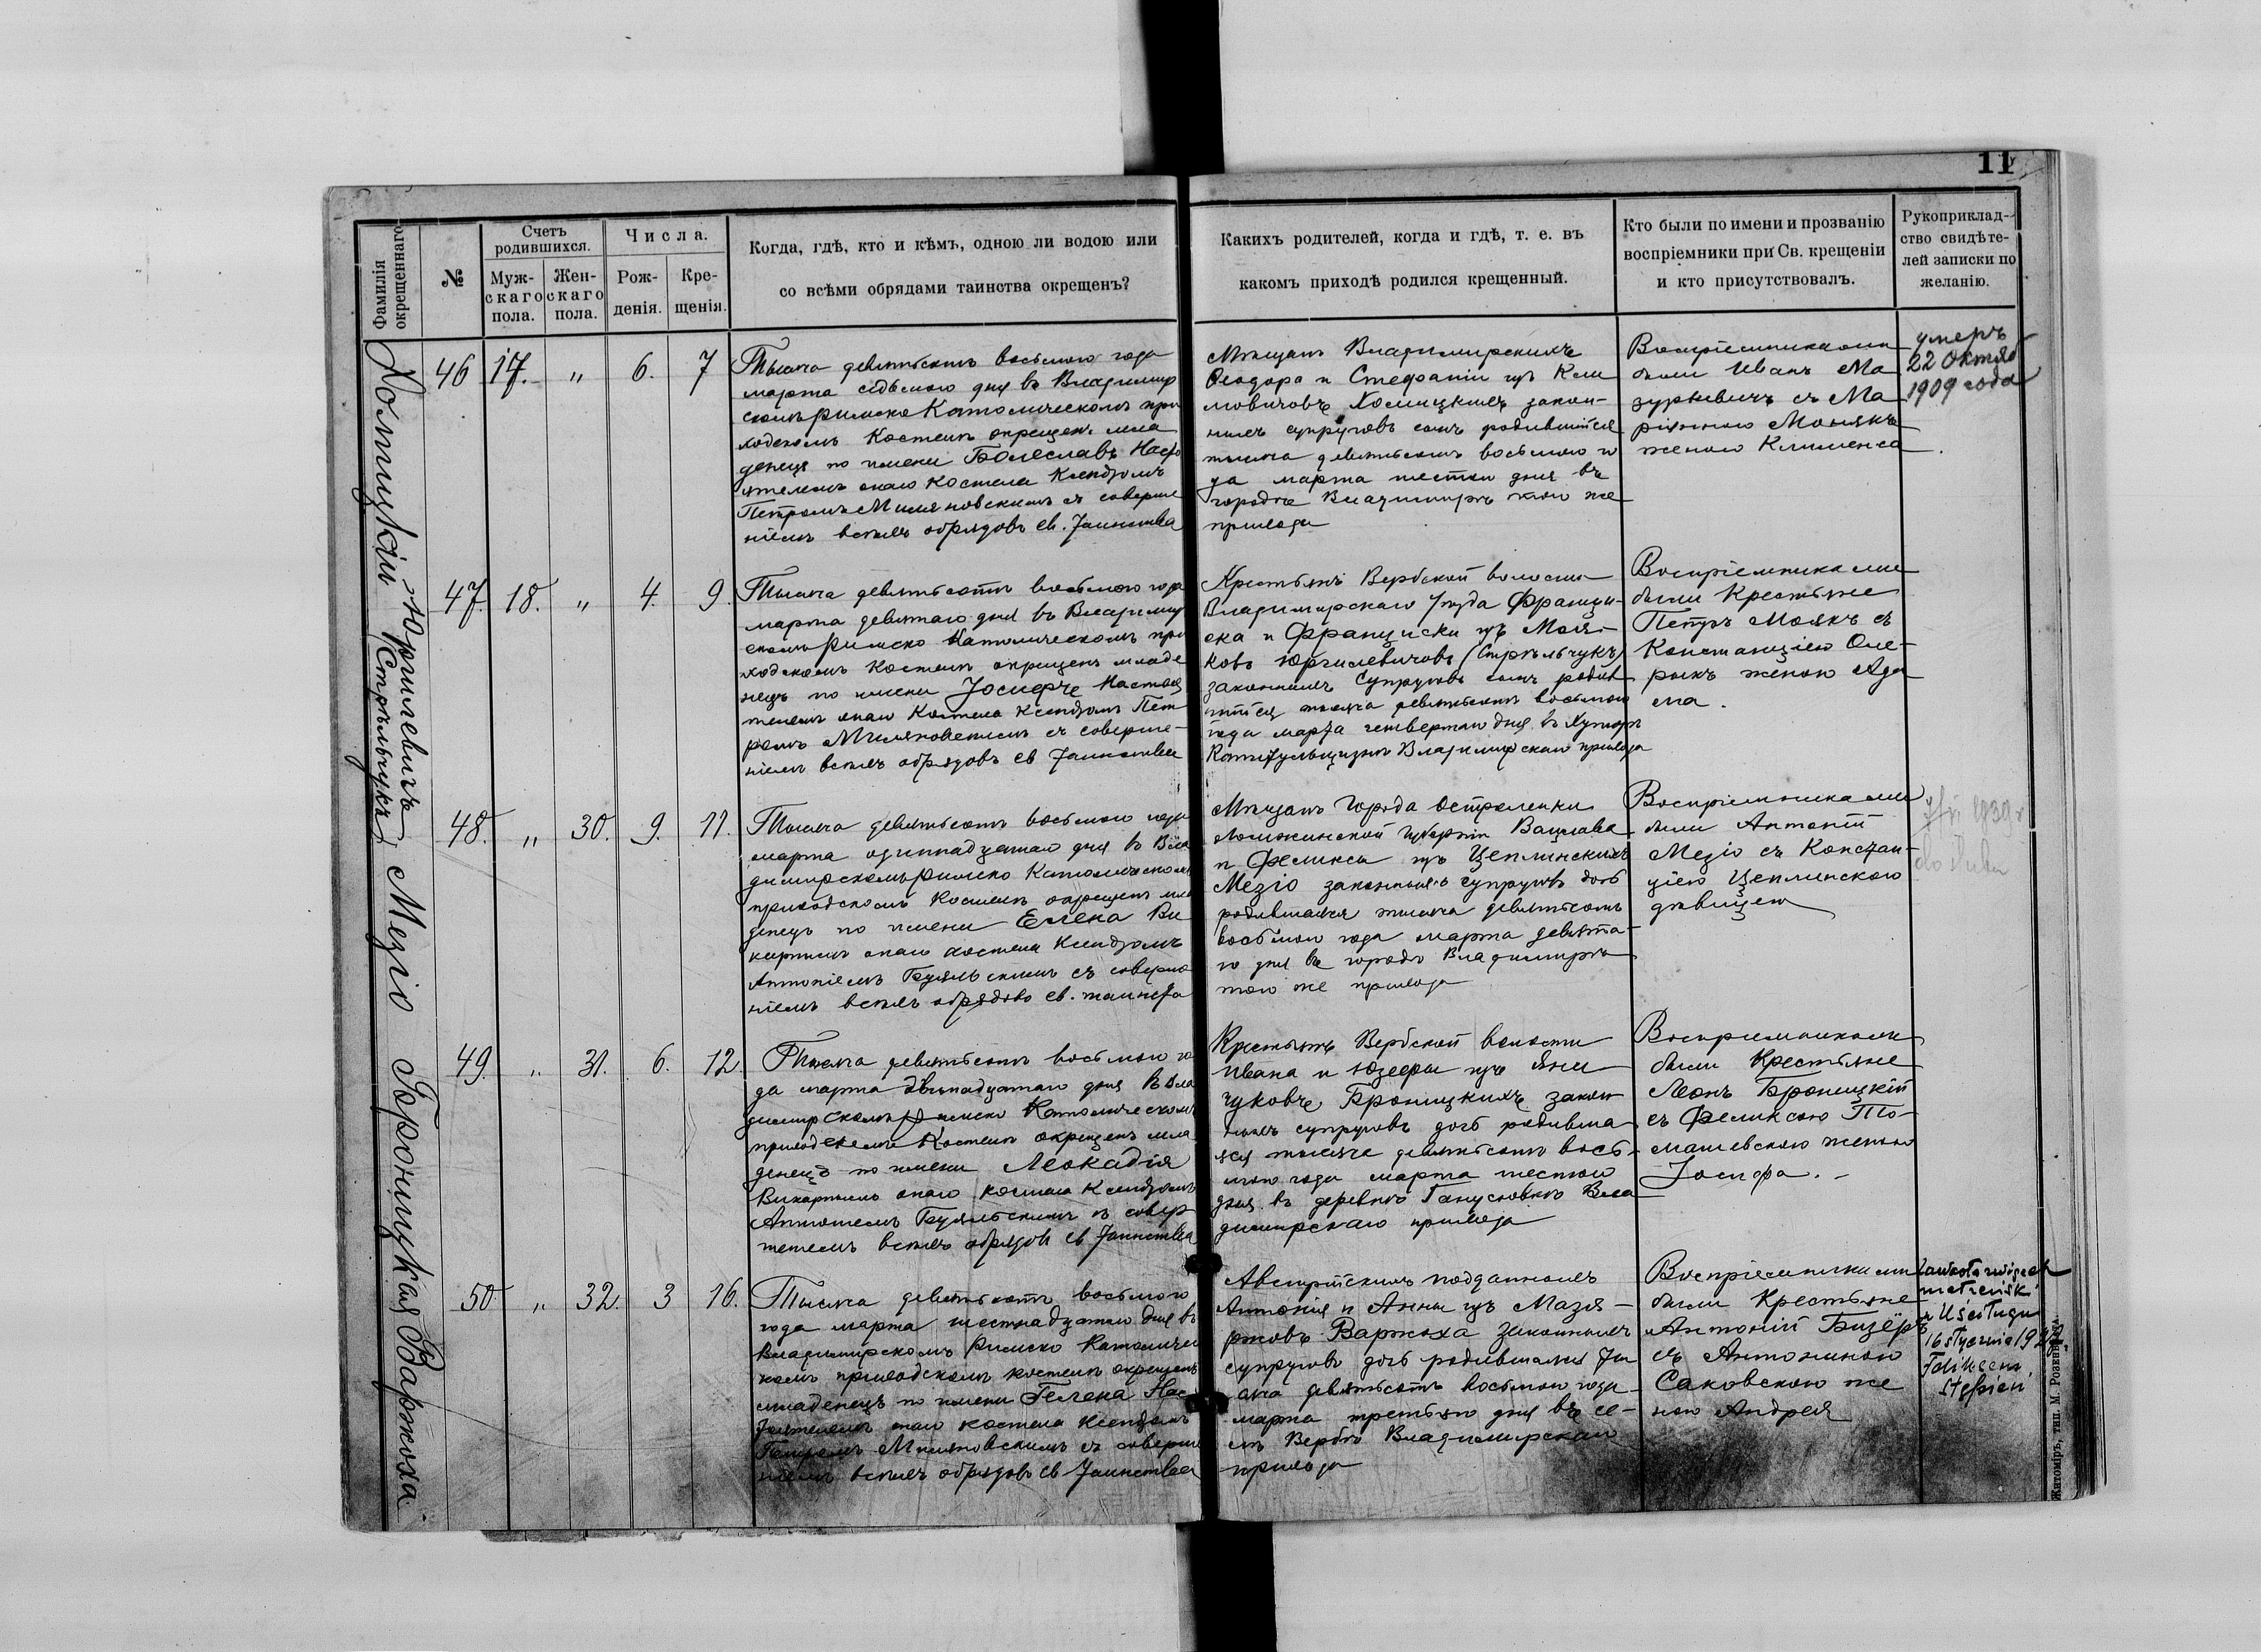 11
Фамилія окрещеннаго
№
Счетъ родившихся.
Муж-скаго пола.
Жен-скаго пола.
Числа.
Рож-денія.
Кре-щенія.
Когда, гдѣ, кто и кѣмъ, одною ли водою или
со всѣми обрядами таинства окрещенъ?
Какихъ родителей, когда и гдѣ, т. е. въ
какомъ приходѣ родился крещенный.
Кто были по имени и прозванію
воспріемники при Св. крещеніи
и кто присутствовалъ.
Рукоприклад-
ство свидѣте-
лей записки по
желанію.
46 17. „ 6. 7
Тысяча девятьсотъ восьмого года
марта седьмого дня въ Владимір
скомъ римско Католическомъ при
ходскомъ Костелѣ окрещенъ мла
денецъ по имени Болеславъ Насто
ятелемъ онаго Костела Ксендзомъ
Петромъ Миляновскимъ съ соверше
ніемъ всѣхъ обрядовъ св. Таинства
Мѣщанъ Владимирскихъ
Ѳеодора и Стефаніи изъ Кли
мовичовъ Хомицкихъ закон-
ныхъ супруговъ сынъ родившійся
тысяча девятьсотъ восьмого го
да марта шестого дня въ
городѣ Владимирѣ того же
прихода
Воспріемниками
были Иванъ Ма
зуркевичъ съ Ма
ріянною Монякъ
женою Климента
умеръ
22 Октяб
1909 года
47. 18. „ 4. 9.
Тысяча девятьсотъ восьмого года
марта девятаго дня въ Владимір
скомъ Римско Католическомъ при
ходскомъ Костелѣ окрещенъ младе
нецъ по имени Іосифъ Настоя
телемъ онаго Костела Ксендзомъ Пет
ромъ Миляновскимъ съ соверше-
ніемъ всѣхъ обрядовъ св Таинства
Крестьянъ Вербской волости
Владимірскаго уѣзда Францис-
ска и Франциски изъ Моня-
ковъ Юргилевичовъ (Стрѣльчукъ)
законныхъ Супруговъ сынъ родив
шійся тысяча девятьсотъ восьмого
года марта четвертаго дня въ Хуторѣ
Владимірскаго прихода
Воспріемниками
были Крестьяне
Петръ Монякъ съ
Констанціею Оле-
рыкъ женою Ада
ма.
48. „ 30. 9. 11.
Тысяча девятьсотъ восьмого года
марта одиннадцатаго дня въ Вла
димірскомъ римско Католическомъ
приходскомъ Костелѣ окрещенъ мла
денецъ по имени Елена Ви
каріемъ онаго костела Ксендзомъ
Антоніемъ Буяльскимъ съ соверше
ніемъ всѣхъ обрядовъ св. таинства
Мѣщанъ Города Остроленки
Ломжинской Губерніи Вацлава
и Феликсы изъ Цеплинскихъ
Мезіо законныхъ супруговъ дочь
родившаяся тысяча девятьсотъ
восьмого года марта девята-
го дня въ городѣ Владимирѣ
того же прихода
Воспріемниками
были Антоній
Мезіо съ Констан-
ціею Цеплинскою
дѣвицею
49. „ 31. 6. 12.
Тысяча девятьсотъ восьмого го
да марта двѣнадцатаго дня въ Вла
димірскомъ римско Католическомъ
приходскомъ Костелѣ окрещенъ мла
денецъ по имени Леокадія
Викаріемъ онаго костела Ксендзомъ
Антоніемъ Буяльскимъ съ совер
шеніемъ всѣхъ обрядовъ св Таинства
Крестьянъ Вербской волости
Ивана и Юзефы изъ Яни
чуковъ Броницкихъ закон
ныхъ супруговъ дочь родивша
яся тысяча девятьсотъ вось-
мого года марта шестого
дня въ деревнѣ Ганусовкѣ Вла
димирскаго прихода
Воспріемниками
были Крестьяне
Леонъ Броницкій
съ Феликсою То-
машевскою женою
Іосифа.
50 „ 32. 3 16.
Тысяча девятьсотъ восьмого
года марта шестнадцатаго дня въ
Владимирскомъ Римско Католичес
комъ приходскомъ костелѣ окрещенъ
младенецъ по имени Гелена Нас
тоятелемъ онаго костела Ксендзомъ
Петромъ Миляновскимъ съ соверше
ніемъ всѣхъ обрядовъ св Таинства
Австрійскихъ подданныхъ
Антонія и Анны изъ Мазя-
ржовъ Варжоха законныхъ
супруговъ дочь родившаяся ты
сяча девятьсотъ восьмого года
марта третьяго дня въ се-
лѣ Вербѣ Владимирскаго
прихода
Воспріемниками
были Крестьяне
Антоній Бизеръ
съ Антониною
Саковскою же
ною Андрея
małżeński
w Uściługu
16 stycznia
Stępień
Хомицкій Юргилевичъ (Стрѣльчукъ) Мезіо Броницкая Варжоха
Житоміръ, тип. М. Розенблата.